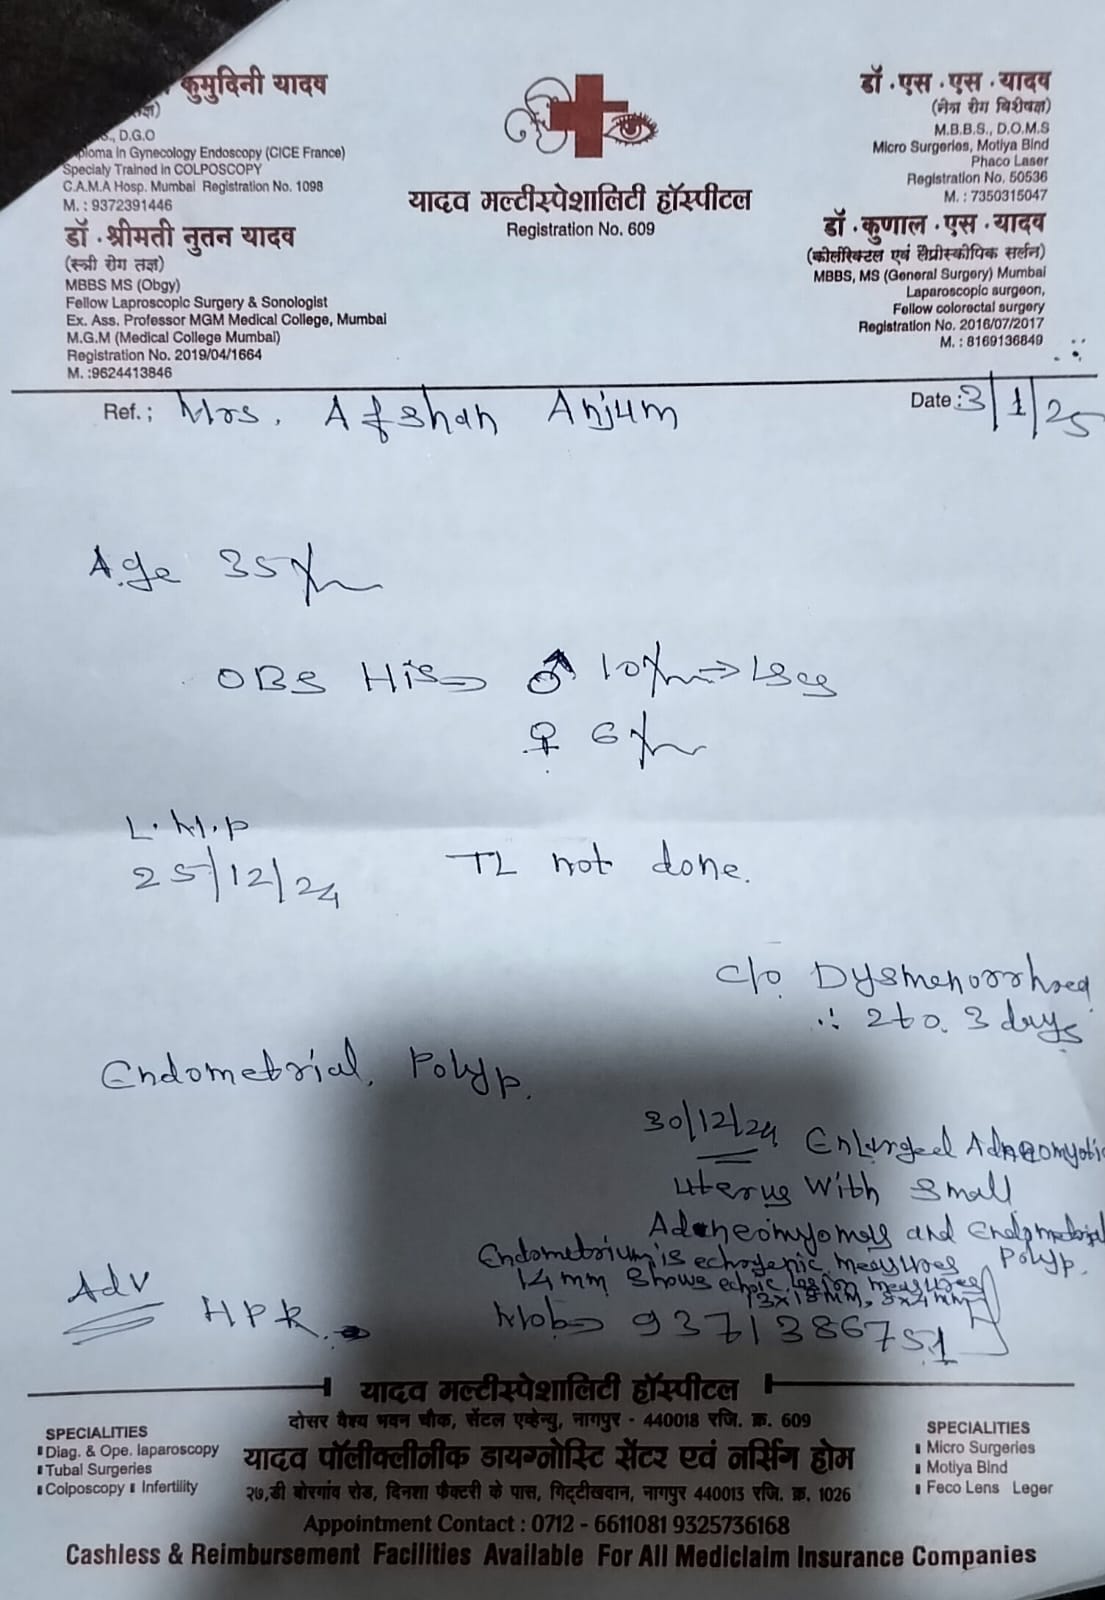 कुमुदिनी यादव
D.G.O
ploma in Gynecology Endoscopy (CICE France)
Specialy Trained in COLPOSCOPY
C.A.M.A Hosp. Mumbai Registration No. 1098
M. : 9372391446
डॉ .श्रीमती नुतन यादव
(स्त्री रोग तज्ञ)
MBBS MS (Obgy)
Fellow Laproscopic Surgery & Sonologist
Ex. Ass. Professor MGM Medical College, Mumbai
M.G.M (Medical College Mumbai)
Registration No. 2019/04/1664
M. :9624413846
यादव मल्टीस्पेशालिटी हॉस्पीटल
Registration No. 609
डॉ .एस .एस .यादव
(नेत्र रोग विशेषज्ञ)
M.B.B.S., D.O.M.S
Micro Surgeries, Motiya Bind
Phaco Laser
Registration No. 50536
M. : 7350315047
डॉ .कुणाल .एस .यादव
(कोलोरेक्टल एवं लॅप्रीस्कीपिक सर्लन)
MBBS, MS (General Surgery) Mumbai
Laparoscopic surgeon,
Fellow colorectal surgery
Registration No. 2016/07/2017
M. : 8169136849
Ref. ; Mrs. Afshan Anjum Date : 3/1/25
Age 35
OBS His ♂ 10 → LSCS
♀ 6
L.M.P
25/12/24 TL not done.
C/o Dysmenorrhoea
∴ 2 to 3 days
Endometrial Polyp.
30/12/24 Enlarged Adenomyotic
uterus with small
Adeneomyomas and Endometrial
Polyp.
Endometrium is echogenic measures
14 mm shows echoic lesion measures
13x18 mm, 8x4 mm
Adv
HPR
Mob 9371386751
यादव मल्टीस्पेशालिटी हॉस्पीटल
दोसर वैश्य भवन चौक, सेंटल एव्हेन्यु, नागपुर - 440018 रजि. क्र. 609
यादव पॉलीक्लीनीक डायग्नोस्टि सेंटर एवं नर्सिंग होम
२७,डी बोरगांव रोड, दिनशा फैक्टरी के पास, गिट्टीखदान, नागपुर 440013 रजि. क्र. 1026
Appointment Contact : 0712 - 6611081 9325736168
SPECIALITIES
Diag. & Ope. laparoscopy
Tubal Surgeries
Colposcopy Infertility
SPECIALITIES
Micro Surgeries
Motiya Bind
Feco Lens Leger
Cashless & Reimbursement Facilities Available For All Mediclaim Insurance Companies